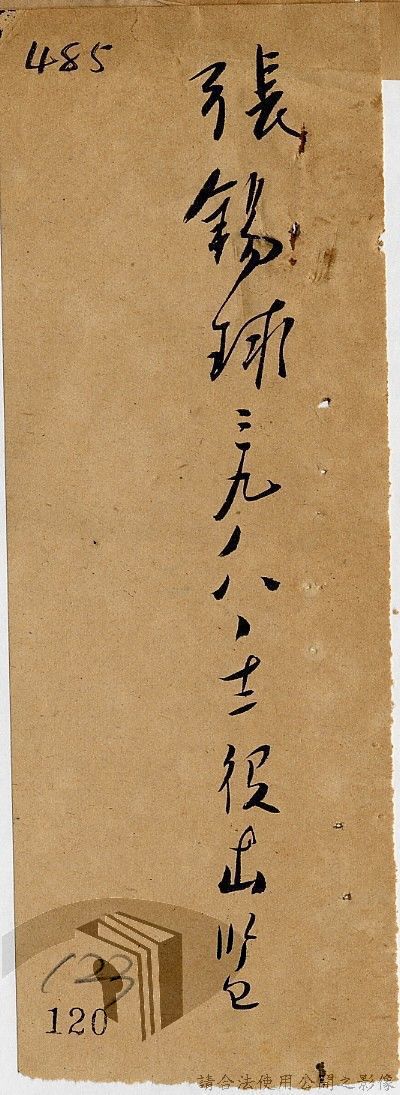 485
張錫球三九、八、十二役出監
123
120
請合法使用公開之影像